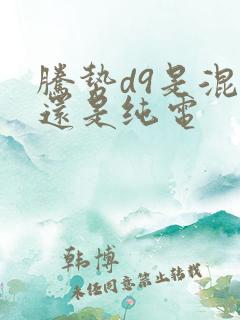 腾势d9是混
还是纯电
韩博
未经同意禁止转载